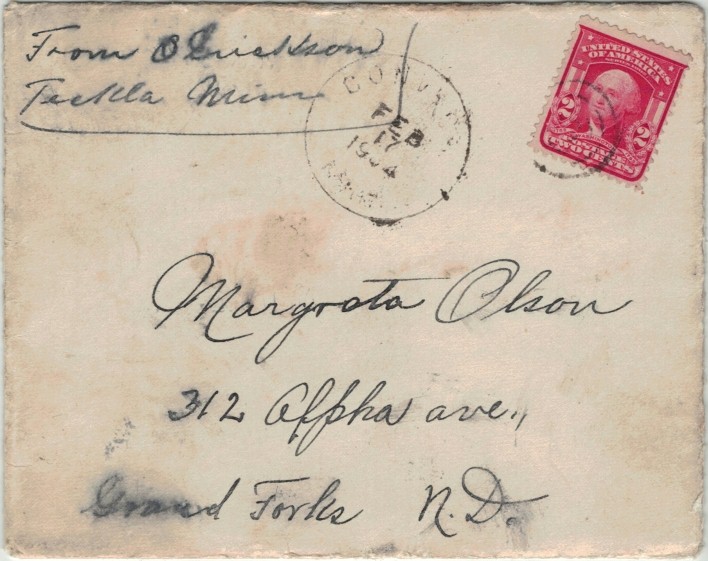 From O Erickson
Teckla Minn
FEB
17
1904
UNITED STATES
OF AMERICA
2 2
TWO CENTS
Margreta Olson
312 Alfpha ave.,
Grand Forks N.D.